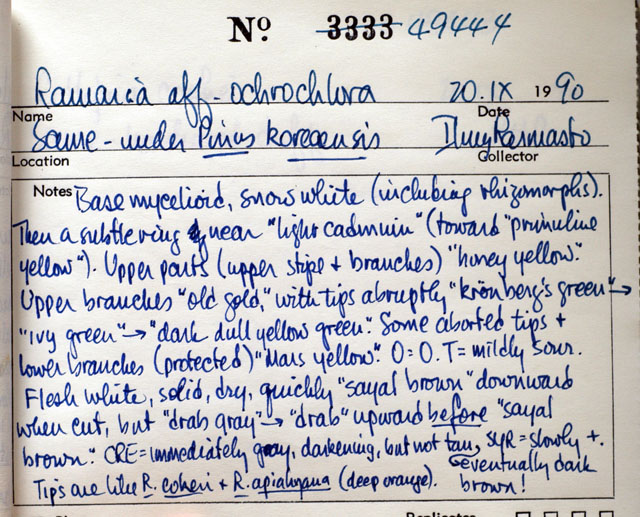 Nº 3333 49444
Ramaria aff. ochrochlora 20.IX 1990
Name Date
Same - under Pinus koreaensis Ilmy Parmasto
Location Collector
Notes Base mycelioid, snow white (including rhizomorphs).
Then a subtle ring near "light cadmium" (toward "primuline
yellow"). Upper parts (upper stipe + branches) "honey yellow."
Upper branches "old gold," with tips abruptly "krönberg's green" →
"ivy green" → "dark dull yellow green". Some aborted tips +
lower branches (protected) "Mars yellow". O = O. T = mildly sour.
Flesh white, solid, dry, quickly "sayal brown" downward
when cut, but "drab gray" → "drab" upward before "sayal
brown." CRE = immediately gray, darkening, but not tan, SYR = slowly +.
eventually dark
Tips are like R. cokeri + R. apiahyna (deep orange). brown!